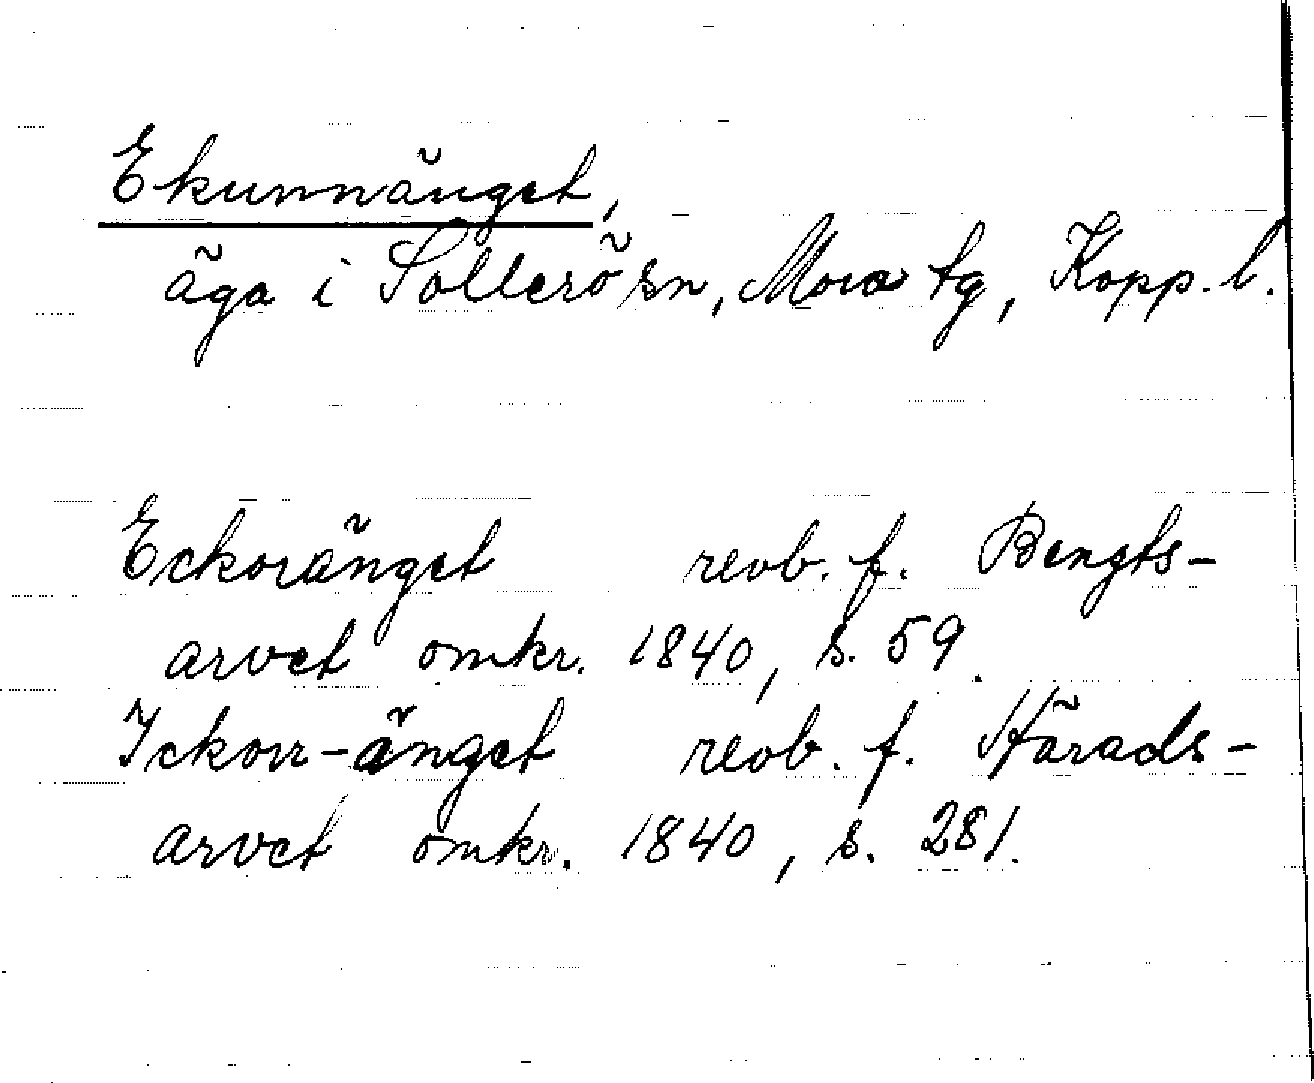 Ekunnänget,
äga i Sollerö sn, Mora tg, Kopp. l.
Eckoränget revb. f. Bengts-
arvet omkr. 1840, s. 59.
Ickorr-änget revb. f. Härads-
arvet omkr. 1840, s. 281.